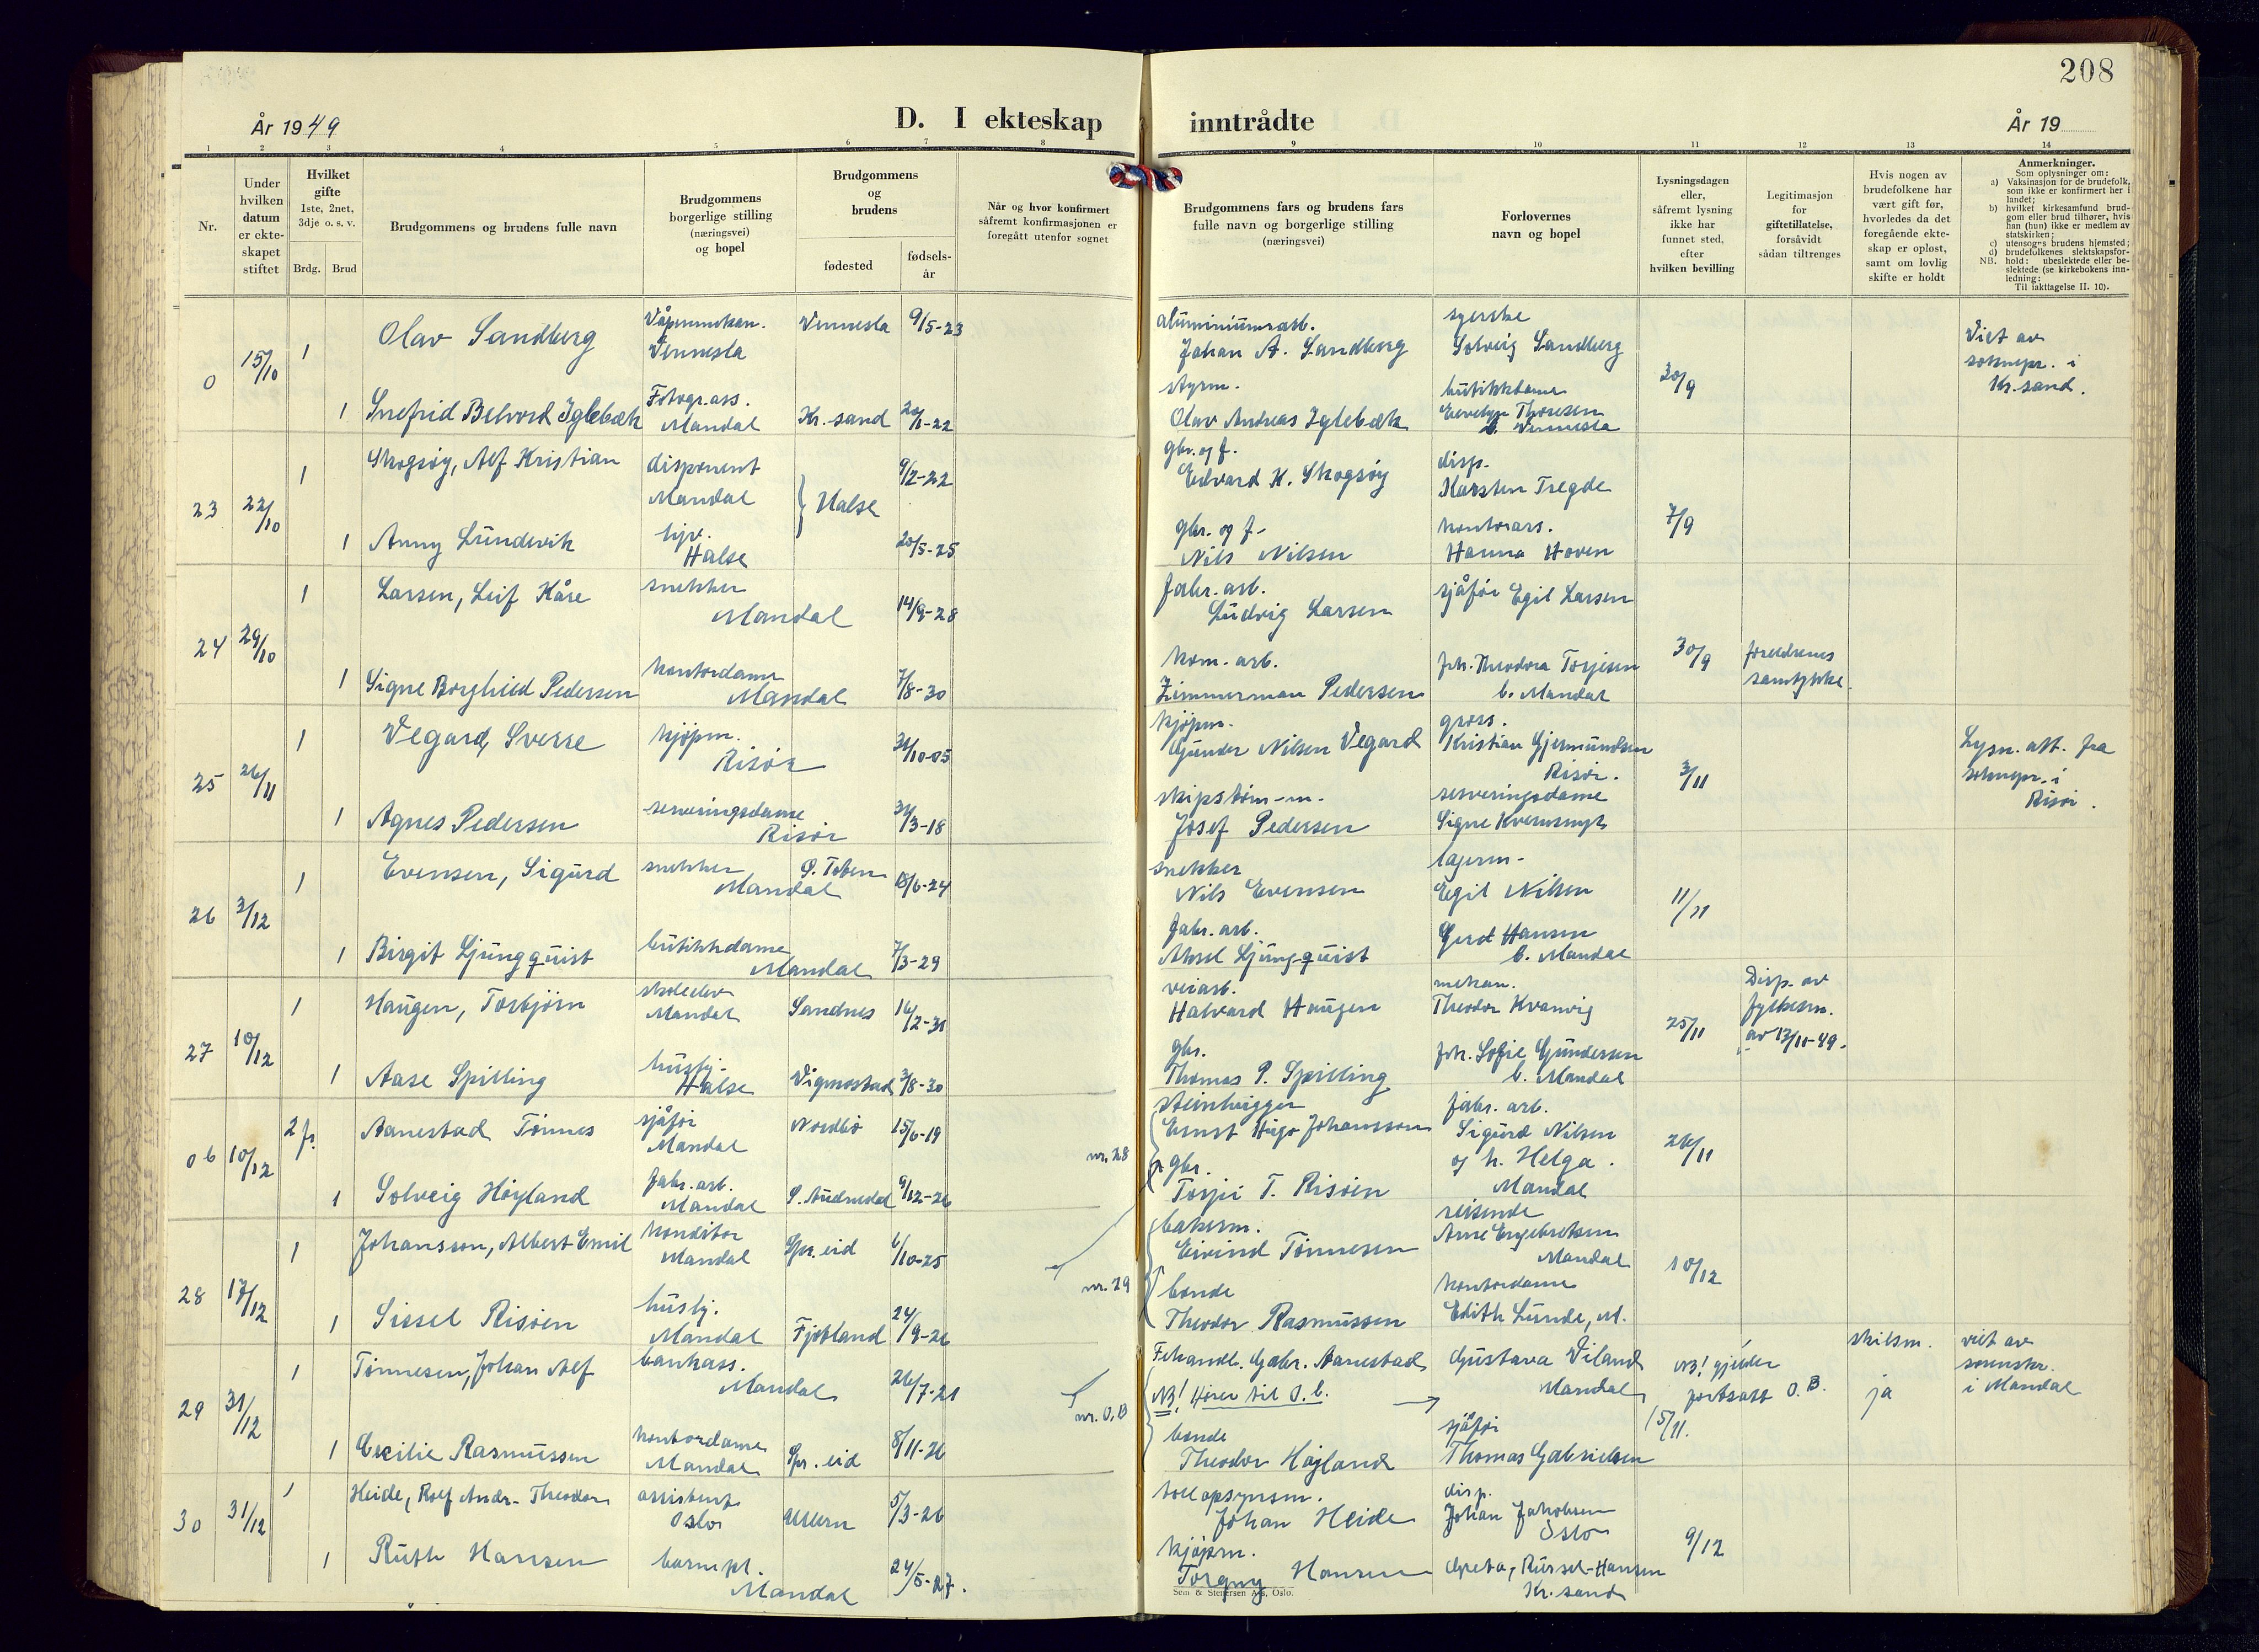 208
År 1949
D. I ekteskap inntrådte
År 19
1 2 3 4 5 6 7 8 9 10 11 12 13 14
Nr.
Under hvilken datum er ekte-skapet stiftet
Hvilket gifte 1ste, 2net, 3dje o. s. v.
Brdg. Brud
Brudgommens og brudens fulle navn
Brudgommens borgerlige stilling (næringsvei) og bopel
Brudgommens og brudens
fødested
fødsels-år
Når og hvor konfirmert såfremt konfirmasjonen er foregått utenfor sognet
Brudgommens fars og brudens fars fulle navn og borgerlige stilling (næringsvei)
Forlovernes navn og bopel
Lysningsdagen eller, såfremt lysning ikke har funnet sted, efter hvilken bevilling
Legitimasjon for giftetillatelse, forsåvidt sådan tiltrenges
Hvis nogen av brudefolkene har vært gift før, hvorledes da det foregående ekte-skap er opløst, samt om lovlig skifte er holdt
Anmerkninger.
Som oplysninger om:
a) Vaksinasjon for de brudefolk, som ikke er konfirmert her i landet;
b) hvilket kirkesamfund brud-gom eller brud tilhører, hvis han (hun) ikke er medlem av statskirken;
c) utensogns brudens hjemsted;
d) brudefolkenes slektskapsfor-hold: ubeslektede eller be-slektede (se kirkebokens inn-ledning:
NB.
Til iakttagelse II. 10).
0 15/10 1 Olav Sandberg Våpenmekan. Vennesla Vennesla 9/5-23 aluminiumsarb. Johan A. Sandberg syerske Solveig Sandberg 30/9 Viet av soknepr. i Kr.sand.
1 Snefrid Belvord Iglebæk Fotogr.ass. Mandal Kr.sand 20/1-22 styrm. Olav Andreas Iglebæk butikkdame Thoresen b. Vennesla
23 22/10 1 Skogsøy, Alf Kristian disponent Mandal } Halse 9/2-22 gbr. og f. Edvard K. Skogsøy disp. Karsten Tregde 7/9
1 Anny Lundevik hjv. Halse 20/5-25 gbr. og f. Nils Nilsen kontorass. Hanna Hoven
24 29/10 1 Larsen, Leif Kåre snekker Mandal 14/9-28 fabr. arb. Ludvig Larsen sjåfør Egil Larsen 30/9 foreldrenes samtykke
1 Signe Borghild Pedersen kontordame Mandal 7/8-30 kom. arb. Zimmerman Pedersen frk. Theodora Torjesen b. Mandal
25 26/11 1 Vegard, Sverre kjøpm. Risør 31/10-05 kjøpm. Gunder Nilsen Vegard gross. Kristian Gjermundsen Risør. 3/11 Lysn. att. fra soknepr. i Risør.
1 Agnes Pedersen serveringsdame Risør 31/3-18 skipstøm-m. Josef Pedersen serveringsdame Signe Kvernsmyr
26 3/12 1 Evensen, Sigurd snekker Mandal 18/6-24 snekker Nils Evensen lagerm. Egil Nilsen 11/11
1 Birgit Ljungquist butikkdame Mandal 7/3-29 fabr. arb. Aksel Ljungquist Gerd Hansen b. Mandal
27 10/12 1 Haugen, Torbjørn skoleelev Mandal Sandnes 16/2-31 veiarb. Halvard Haugen mekan. Theodor Kvanvig 25/11 Disp. av fylkesm. av 13/10-49.
1 Aase Spilling husbj. Halse Vigmostad 3/8-30 gbr. Thomas P. Spilling frk. Sofie Gundersen b. Mandal
0b 10/12 2 fr. Aanestad Tønnes sjåfør Mandal Nordbø 15/6-19 nr. 28 steinhugger Ernst Hugo Johansson fabr. arb. Sigurd Nilsen og h. Helga. Mandal 26/11
1 Solveig Høyland fabr. arb. Mandal S. Audnedal 9/12-26 gbr. Torjei T. Risøen
28 17/12 1 Johansson, Albert Emil konditor Mandal Spr. eid 6/10-25 nr. 29 bakerm. Eivind Tønnesen reisende Arne Engebretsen Mandal 10/12
1 Sissel Risøen husbj. Mandal Fjotland 24/9-26 bonde Theodor Rasmussen kontordame Edith Lunde, M.
29 31/12 1 Tønnesen, Johan Alf bankass. Mandal 26/7-21 nr. 0.B Fehandl. Gabr. Aanestad Gustava Viland Mandal NB! gjelder fortsatt O.B. skilsm. ja viet av sorenskr. i Mandal
NB! Hører til O.b. →
1 Cecilie Rasmussen kontordame Mandal Spr. eid 8/11-26 bonde Theodor Høyland sjåfør Thomas Gabrielsen 15/11.
30 31/12 1 Heide, Rolf Andr. Theodor assistent Oslo Ullern 5/3-26 tollopsynsm. Johan Heide disp. Johan Jakobsen Oslo 9/12
1 Ruth Hansen barnepl. Mandal 24/5-27. kjøpm. Torgny Hansen Greta, Rürsel-Hansen Kr.sand
Sem & Stenersen A/S, Oslo.